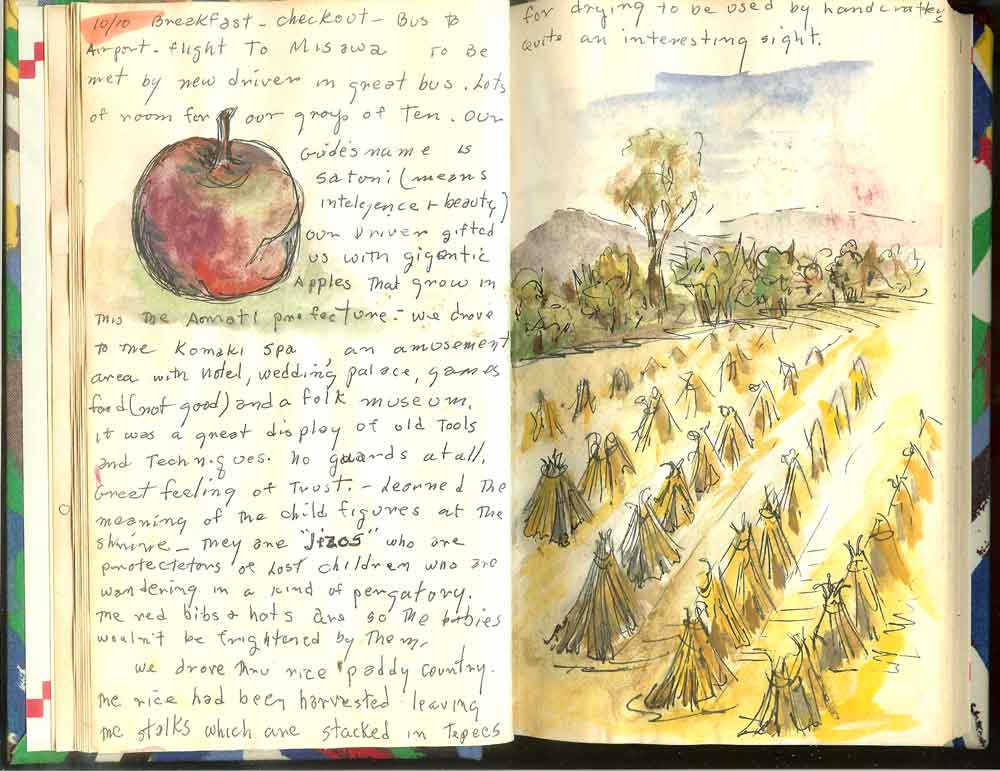 10/10 Breakfast - checkout - Bus to
Airport - flight To Misawa To Be
met by new driver in great bus. Lots
of room for our group of Ten. Our
Guide's name is
Satoni (means
intelegence + beauty)
our Driver gifted
us with gigantic
Apples That grow in
This The Aomati prefecture. - We drove
to the Komaki Spa, an amusement
area with hotel, wedding palace, games
food (not good) and a folk museum.
it was a great display of old Tools
and Techniques. No guards at all.
Great feeling of Trust. - Learned The
meaning of the child figures at The
shrine - They are "Jizos" who are
protectetors of Lost Children who are
wandering in a kind of pergatory.
The red bibs & hats are so the babies
wouldn't be frightened by Them.
we drove thru rice paddy country.
The rice had been harvested leaving
the stalks which are stacked in Tepees
for drying to be used by handcrafters
quite an interesting sight.